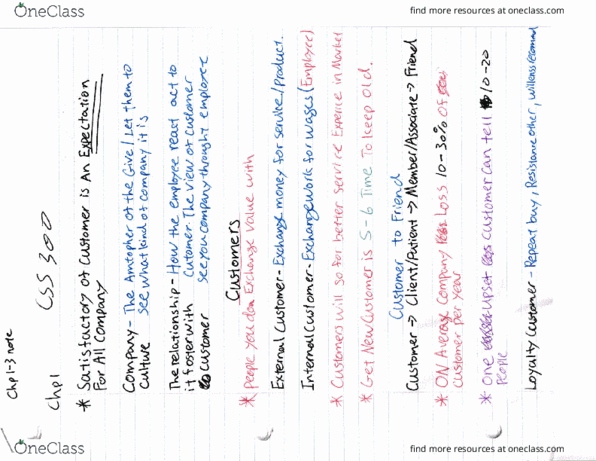 OneClass
find more resources at oneclass.com
Chp 1-3 note
Chp 1
CSS 300
* Satisfactory of Customer is An Expectation
For All Company
Company - The Amtopher of the Give / Let them to
culture see what kind of company it is
The relationship - How the employee react act to
it foster with Cutomer. The view of customer
customer see you company throught employee
Customers
* People you do Exchange value with
External Customer - Exchange money for service/product.
Internal Customer - Exchange work for wages (Employee)
* Customers will so for better service Experice in Market
* Get New Customer is 5-6 Time To keep old.
Customer to Friend
Customer → Client/Patient → Member/Associate → Friend
* ON Average Company Loss 10-30% Of
Customer per year
* One upset customer can tell 10-20
People
Loyalty Customer - Repeat buy, Resistance other, willing
OneClass
find more resources at oneclass.com